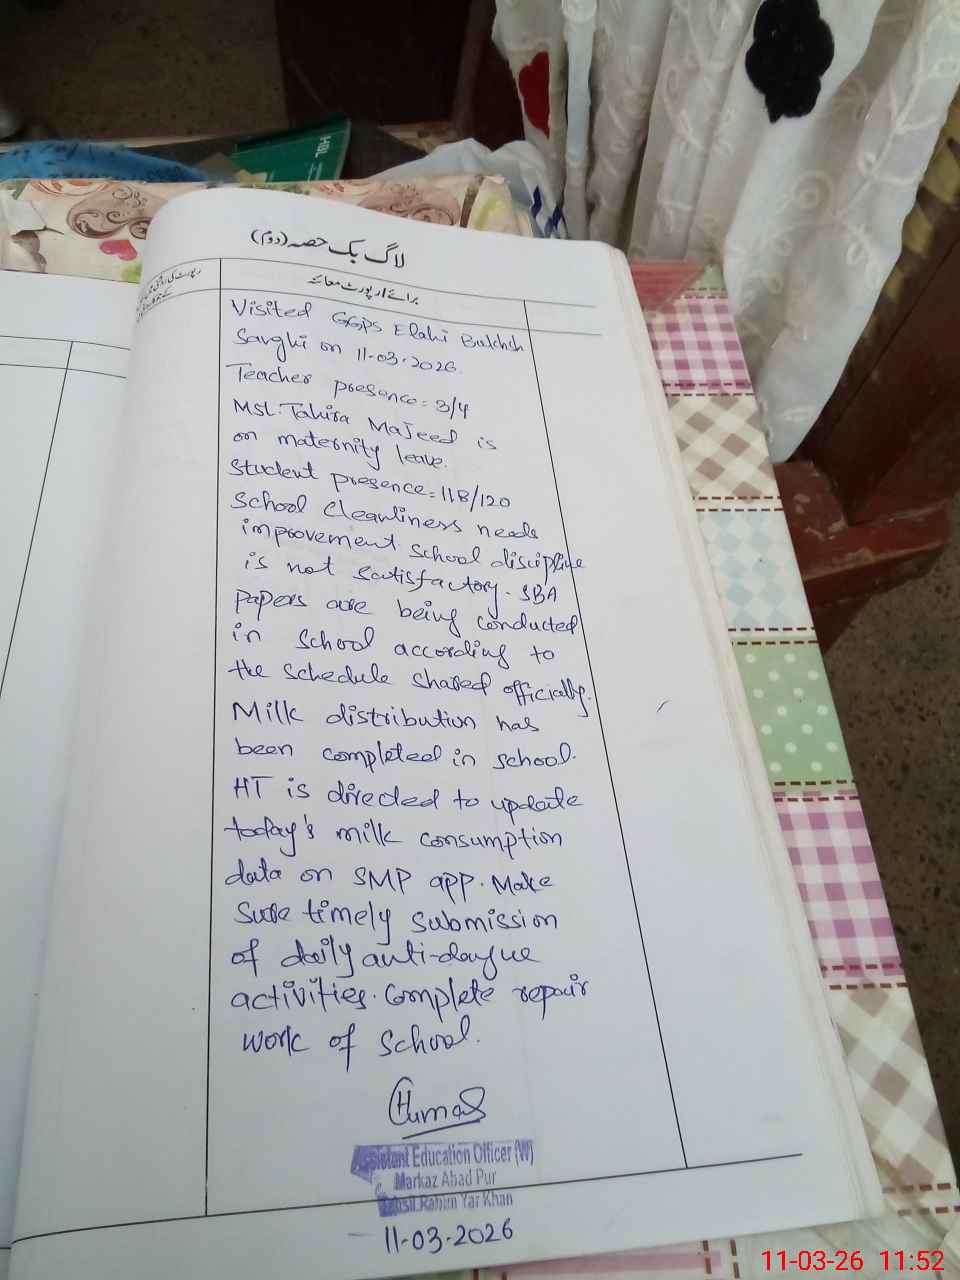 HBL
لاگ بک حصہ (دوم)
برائے رپورٹ معائنہ
رپورٹ کی روشنی میں
Visited GGPS Elahi Bukhsh
Sarghi on 11-03-2026.
Teacher presence = 3/4
Mst. Tahira Majeed is
on maternity leave.
Student presence = 118/120
School Cleanliness needs
improvement School discipline
is not satisfactory. SBA
papers are being conducted
in school according to
the schedule shared officially.
Milk distribution has
been completed in school.
HT is directed to update
today's milk consumption
data on SMP app. Make
sure timely submission
of daily anti-dengue
activities. Complete repair
work of school.
Humas
Assistant Education Officer (W)
Markaz Abad Pur
Tehsil Rahim Yar Khan
11-03-2026
11-03-26 11:52